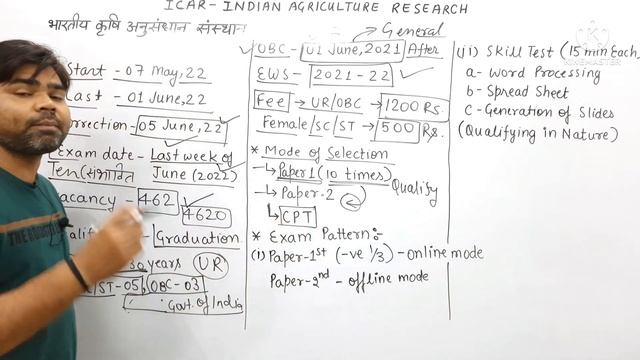 ICAR- INDIAN AGRICULTURE RESEARCH
भारतीय कृषि अनुसंधान संस्थान
Start - 07 May, 22
Last - 01 June, 22
05 June, 22
Exam date - Last week of
Ten (संभावित June (2022)
Vacancy - 462
4620
Graduation
30 years UR
ST-05, OBC-03
Govt. of India
General
OBC - 01 June, 2021 After
EWS - 2021-22
Fee → UR/OBC → 1200 Rs.
Female/SC/ST → 500 Rs.
* Mode of Selection
→ Paper 1 (10 times)
→ Paper-2 Qualify
→ CPT
* Exam Pattern:-
(i) Paper-1st (-ve 1/3) - online mode
Paper-2nd - offline mode
(ii) Skill Test (15 min Each,
a- Word Processing
b- Spread Sheet
C- Generation of Slides
(Qualifying in Nature)
KINEMASTER